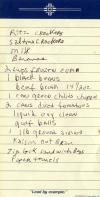 Ritz crackers
saltine crackers
milk
Bananas
2 cups frozen corn
1 black beans
beef broth 14 1/2 oz
1 can green chilis
2 cans diced tomatoes
liquid oxy clean
1 lb ground
Raisin nut Bran
zip lock sandwich bags
Paper towels
"Lead by example."